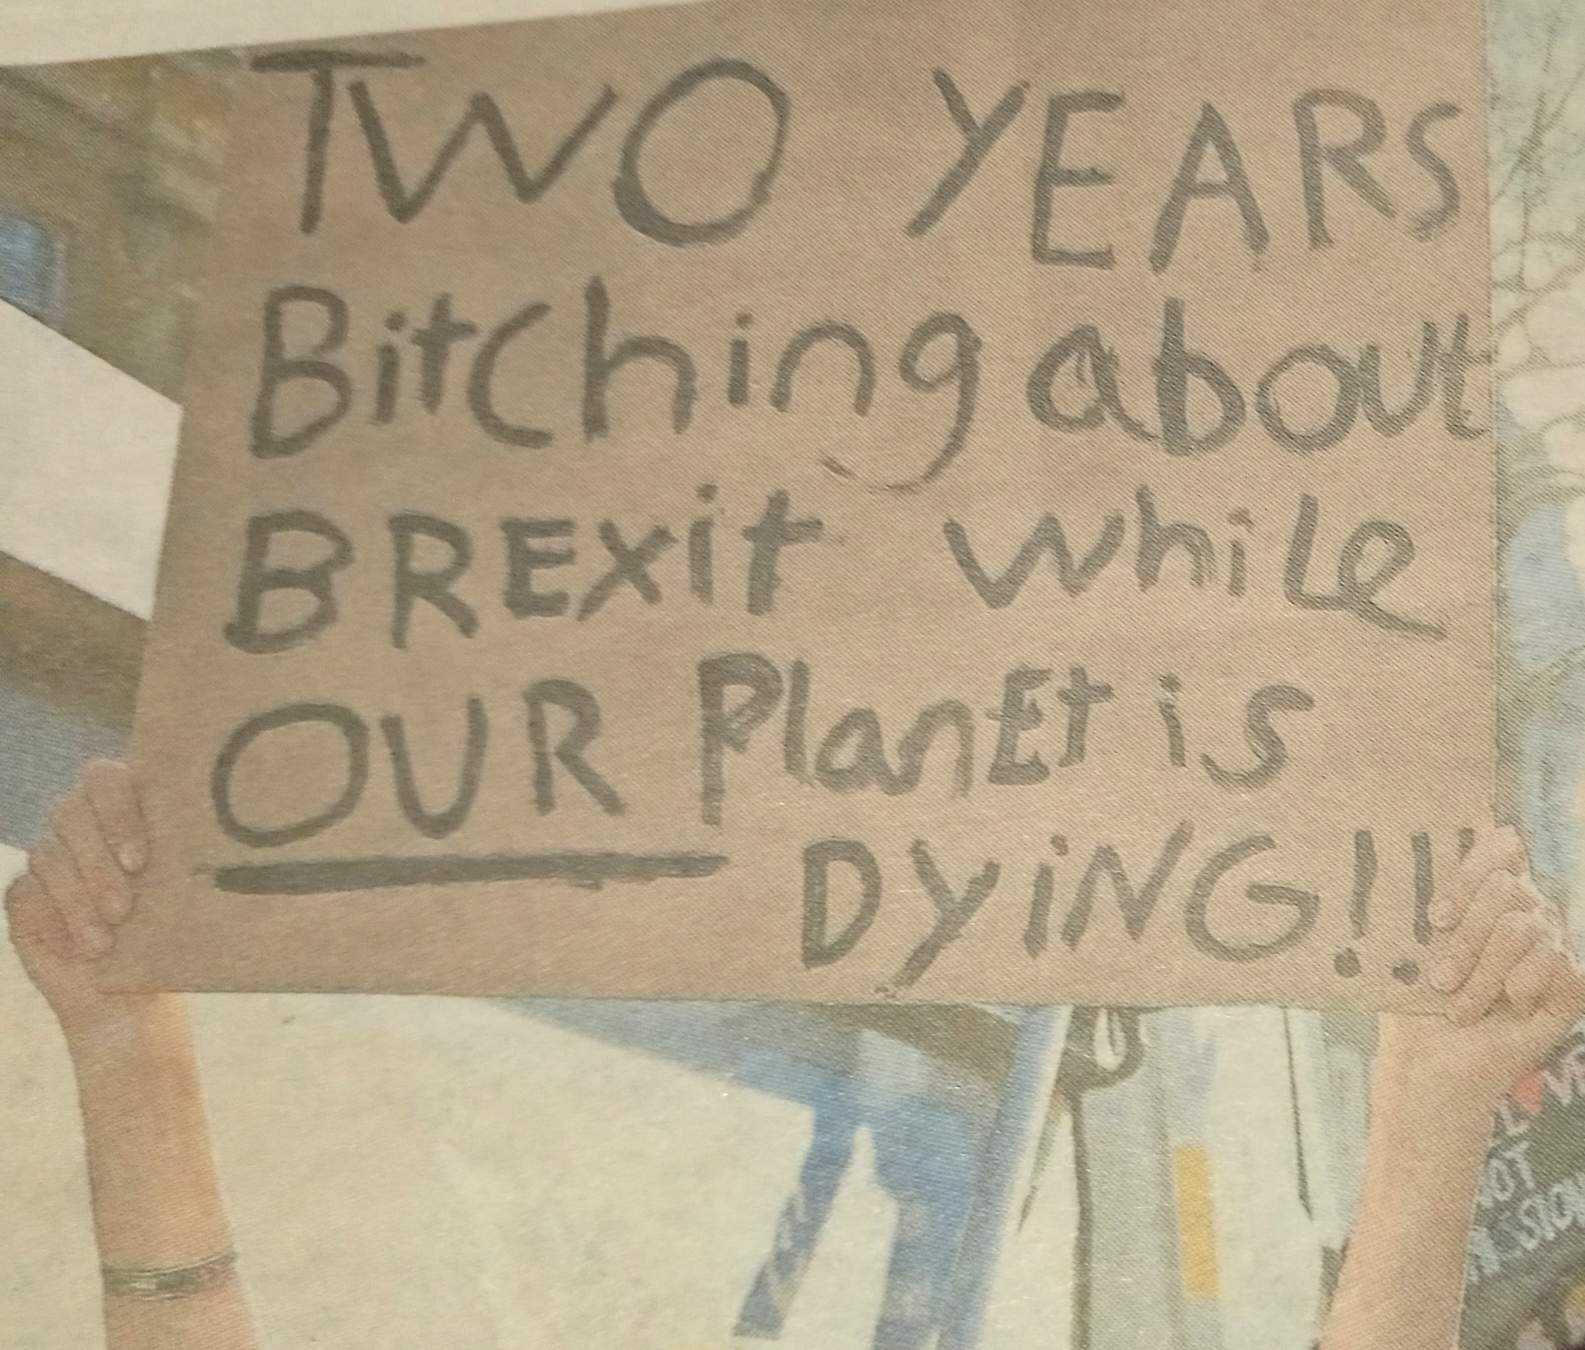 TWO YEARS
BitChing about
BREXit while
OUR PlanEt is
DYiNG!!